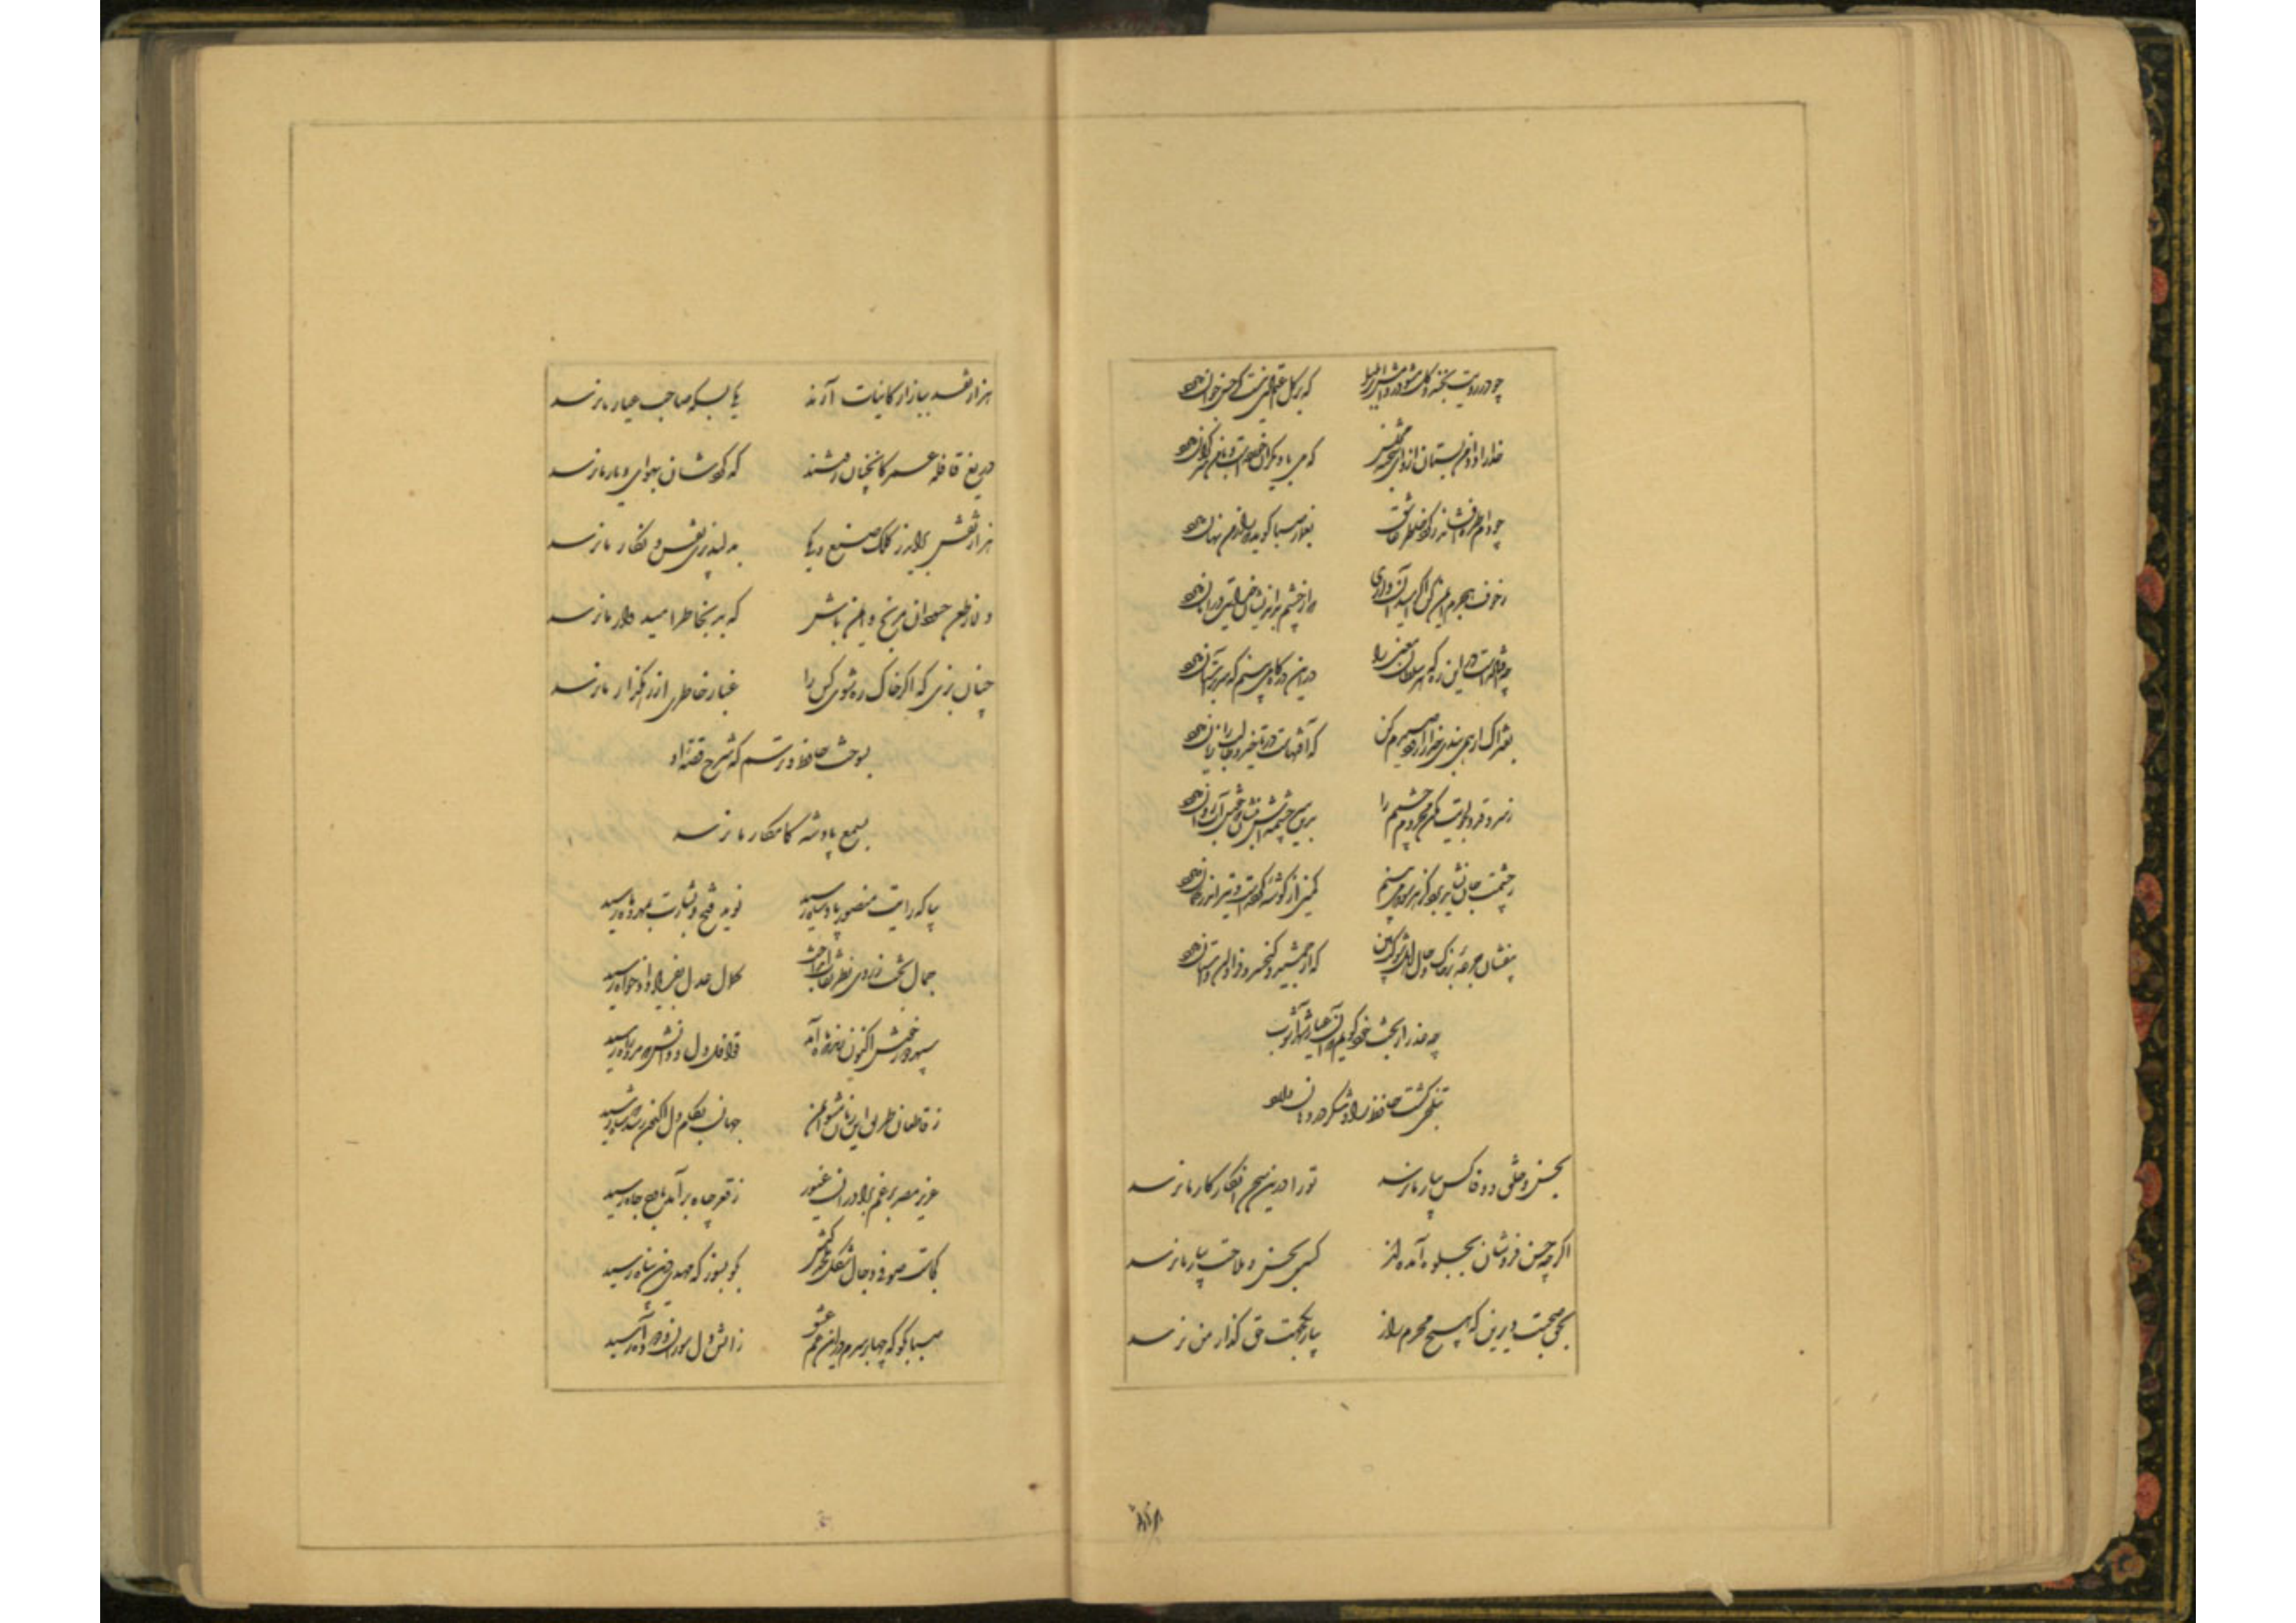 چو در رویت بخندد گل مشو در دامش ای بلبل	که بر گل اعتمادی نیست گر حسن جهان دارد
خدا را داد من بستان ازو ای شحنه مجلس	که می با دیگری خوردست و با من سر گران دارد
چو دام طره افشاند ز گرد خاطر عشاق	بغماز صبا گوید که راز من نهان دارد
ز خوف هجرم ایمن کن اگر امید آن داری	که از چشم بد اندیشان خدایت در امان دارد
چه درین ره که هر سلطان معنی را	درین درگاه می بینم که سر بر آستان دارد
بفتراک ار همی بندی خدا را زود صیدم کن	که آفتهاست در تاخیر و طالب را زیان دارد
ز سرو قد دلجویت مکن محروم چشمم را	بدین سرچشمه اش بنشان که خوش آبی روان دارد
ز چشمت جان نشاید برد کز هر سو که می بینم	کمین از گوشه کردست و تیر اندر کمان دارد
بیفشان جرعه بر خاک و حال اهل شوکت بین	که از جمشید و کیخسرو هزاران داستان دارد
چه عذر از بخت خود گویم که آن عیار شهر آشوب
بتلخی کشت حافظ را و شکر در دهان دارد
بحسن و خلق و وفا کس بیار ما نرسد	تو را درین سخن انکار کار ما نرسد
اگر چه حسن فروشان بجلوه آمده اند	کسی بحسن و ملاحت بیار ما نرسد
بحق صحبت دیرین که هیچ محرم راز	بیار یک جهت حق گذار من نرسد
هزار نقد ببازار کاینات آرند	یکی بسکه صاحب عیار ما نرسد
دریغ قافله عمر کانچنان رفتند	که گردشان بهوای دیار ما نرسد
هزار نقش برآید ز کلک صنع و یکی	بدلپذیری نقش و نگار ما نرسد
دلا ز طعن حسودان مرنج و ایمن باش	که بد بخاطر امیدوار ما نرسد
چنان بزی که اگر خاک ره شوی کس را	غبار خاطری از رهگذار ما نرسد
بسوخت حافظ و ترسم که شرح قصه او
بسمع پادشه کامکار ما نرسد
بیا که رایت منصور پادشاه رسید	نوید فتح و بشارت بمهر و ماه رسید
جمال بخت ز روی ظفر نقاب انداخت	کمال عدل بفریاد دادخواه رسید
سپهر دور خوش اکنون زند که ماه آمد	جهان بکام دل اکنون رسد که شاه رسید
ز قاطعان طریق این زمان شوند ایمن	قوافل دل و دانش که مرد راه رسید
عزیز مصر برغم برادران غیور	ز قعر چاه برآمد باوج ماه رسید
کجاست صوفی دجال شکل ملحد کیش	بگو بسوز که مهدی دین پناه رسید
صبا بگو که چها بر سرم درین غم عشق	ز آتش دل سوزان و دود آه رسید